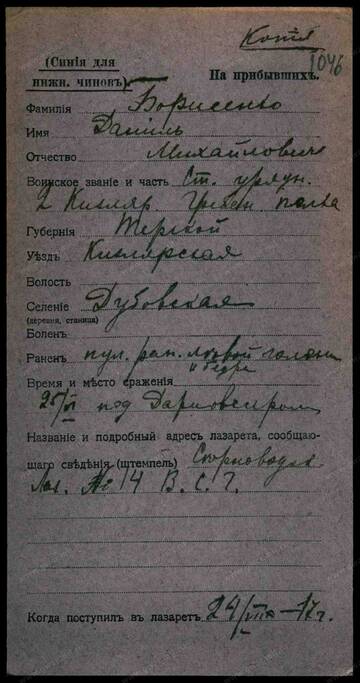 Копія
1046
(Синія для
нижн. чиновъ).
На прибывшихъ.
Фамилія Борисенко
Имя Даніилъ
Отчество Михайловичъ
Воинское званіе и часть Ст. урядн.
2 Кизляр. Гребен полка
Губернія Терской
Уѣздъ Кизлярская
Волость
Селеніе Дубовская
(деревня, станица)
Боленъ
Раненъ пул. ран. лѣвой голени
и бедра
Время и мѣсто сраженія
25/VI под
Названіе и подробный адресъ лазарета, сообщаю-
щаго свѣдѣнія (штемпель)
Лаз. № 14 В. С. Г.
Когда поступилъ въ лазаретъ 24/VIII—17 г.